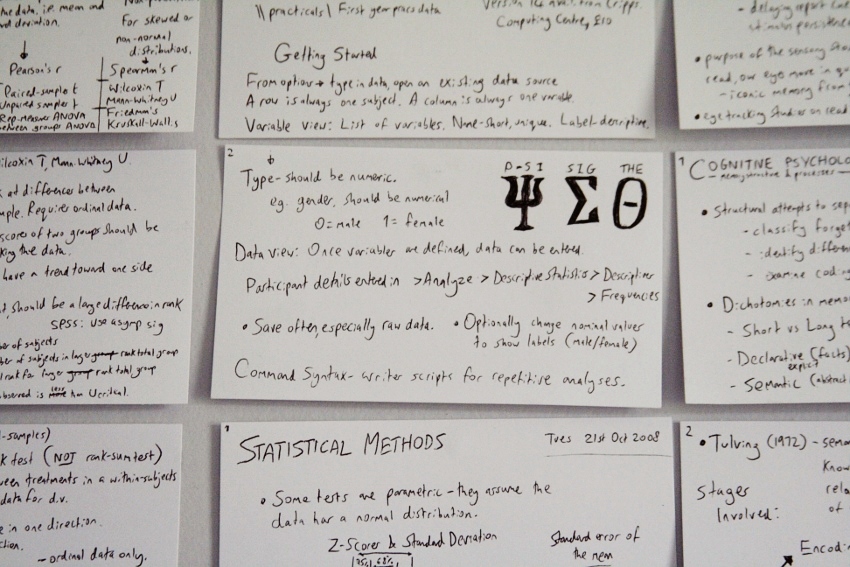 and deviation.
Pearson's r
Paired-sample t
Unpaired samples t
Rep-measures ANOVA
between groups ANOVA
For skewed or
non-normal
distributions.
Spearman's r
Wilcoxin T
Mann-Whitney U
Friedman's
Kruskall-Wallis
practicals\ First year pracs data
Computing Centre, £10
Getting Started
From options → type in data, open an existing data source
A row is always one subject. A column is always one variable.
Variable view: List of variables. Name-short, unique. Label-descriptive.
stimulus persistence
• purpose of the sensory
- iconic memory from
• eye tracking studies on read
ilcoxin T, Mann Whitney U
at differences between
mple. Requires ordinal data.
scores of two groups should be
king the data.
have a trend toward one side
t, should be a large difference in rank
SPSS: use asymp sig
ber of subjects
ber of subjects in larger group rank total group
l rank for larger group rank total group
observed is more less than U critical.
2
Type - should be numeric.
eg. gender, should be numerical
0=male 1=female
D-SI SIG THE
Ψ Σ Θ
Data view: Once variables are defined, data can be entered.
Participant details entered in >Analyze > Descriptive Statistics > Descriptives
> Frequencies
• Save often, especially raw data. • Optionally change nominal values
to show labels (male/female)
Command Syntax- writer scripts for repetitive analyses.
1
COGNITIVE PSYCHOLO
- memory structure & processes -
• Structural attempts to sep
- classify forget
- identify differen
- examine codin
• Dichotomies in memor
- Short vs Long t
- Declarative (facts)
explicit
- Semantic (abstract
-samples)
k test (NOT rank-sum test)
een treatments in a within-subjects
data for d.v.
e in one direction.
ction.
- ordinal data only.
1
STATISTICAL METHODS Tues 21st Oct 2008
• Some tests are parametric - they assume the
data has a normal distribution.
Z-Scores & Standard Deviation
Standard error of
the mean
2
• Tulving (1972) - sema
Know
Stages rela
Involved: of
Encodi